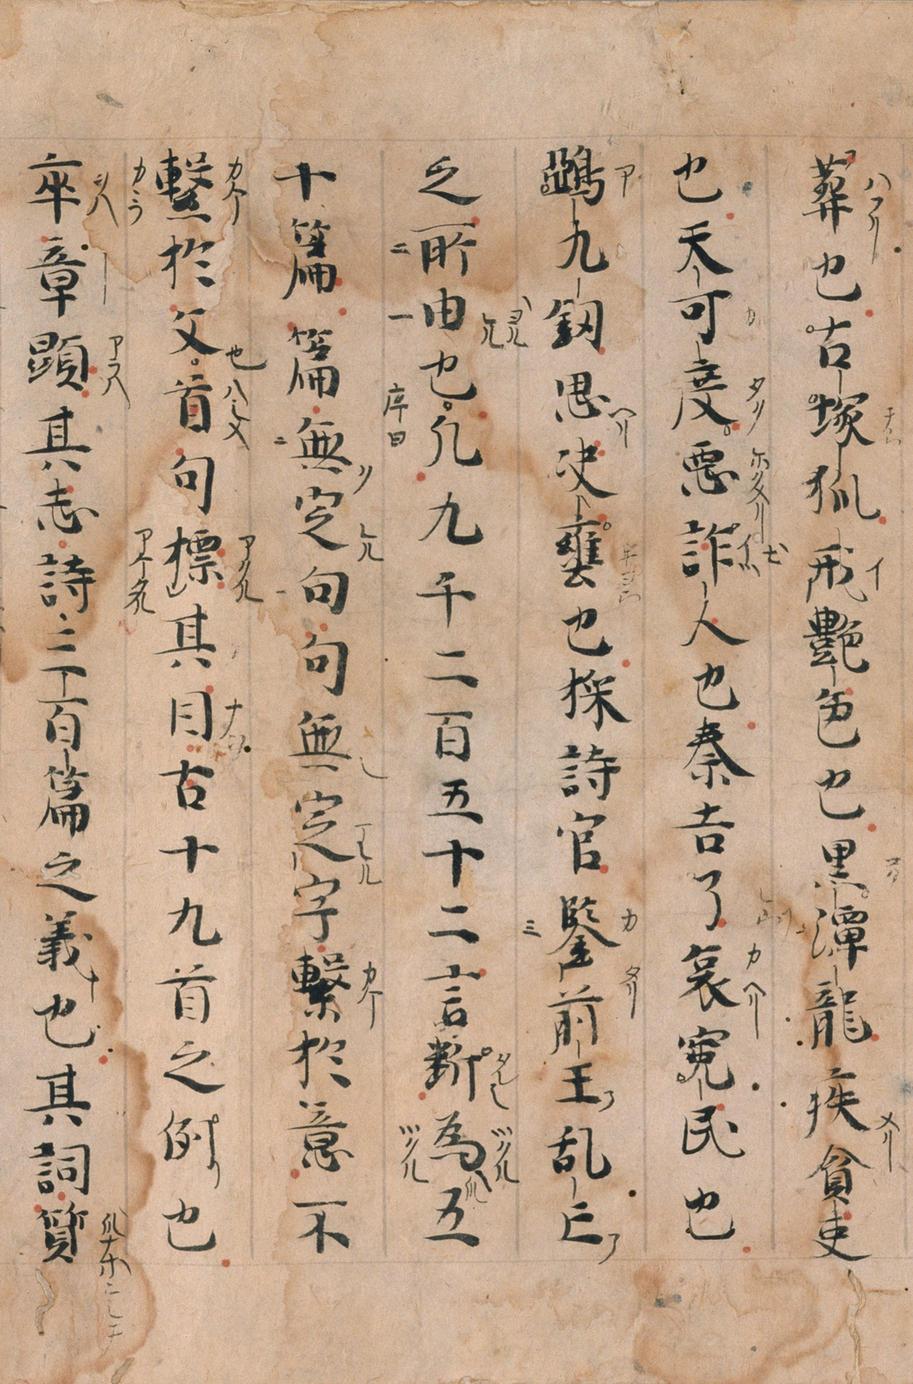 葬也古塚狐形艶色也黒潭龍疾貪吏
也天可度悪詐人也秦吉了哀寃民也
鵶九釼思决壅也採詩官鑒前王乱亡
之所由也凡九千二百五十二言断為五
十篇篇無定句句無定字繋於意不
繋於文首句標其目古十九首之例也
卒章顕其志詩三百篇之義也其詞質